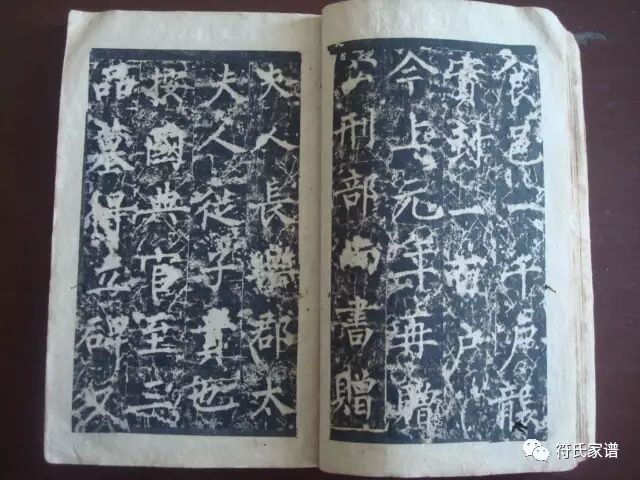 食邑一千户
實封一百户
今上元年再贈
刑部尚書贈
夫人長郡太
夫人從子貴也
按國典官至三
品墓得立碑又
符氏家谱